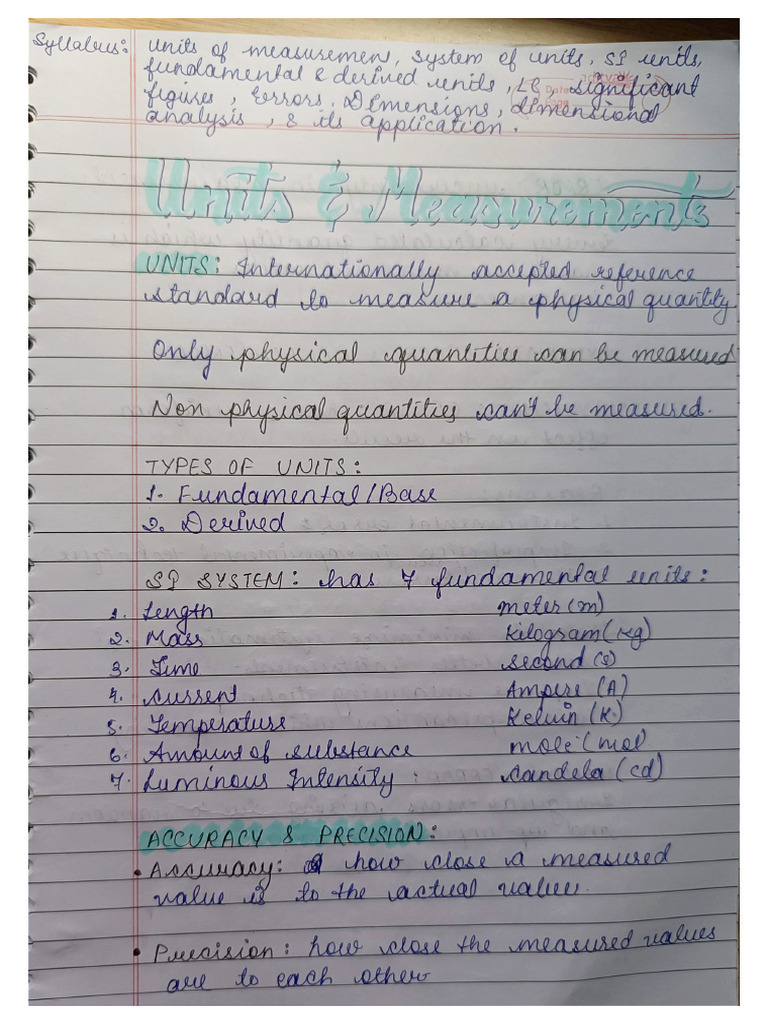 Syllabus: units of measuremen, system of units, SI units,
fundamental & derived units, LC, significant
figures, Errors, Dimensions, dimensional
analysis, & its application.
Units & Measurements
UNITS: Internationally accepted reference
standard to measure a physical quantity
Only physical quantities can be measured
Non physical quantities can't be measured.
TYPES OF UNITS:
1. Fundamental/Base
2. Derived
SI SYSTEM: has 7 fundamental units:
1. Length meter (m)
2. Mass Kilogram (Kg)
3. Time second (s)
4. current Ampere (A)
5. Temperature Kelvin (K)
6. Amount of substance mole (mol
7. Luminous Intensity: candela (cd)
ACCURACY & PRECISION:
• Accuracy: how close a measured
value is to the actual value.
• Precision: how close the measured values
are to each other